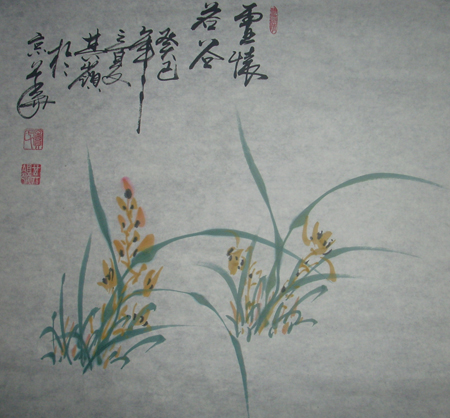 虚懷
若谷
癸巳
年
夏
其嶺
於
京華